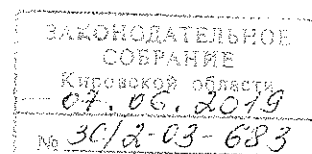 ЗАКОНОДАТЕЛЬНОЕ
СОБРАНИЕ
Кировской области
07.06.2019
№ ЗС/2-03-683